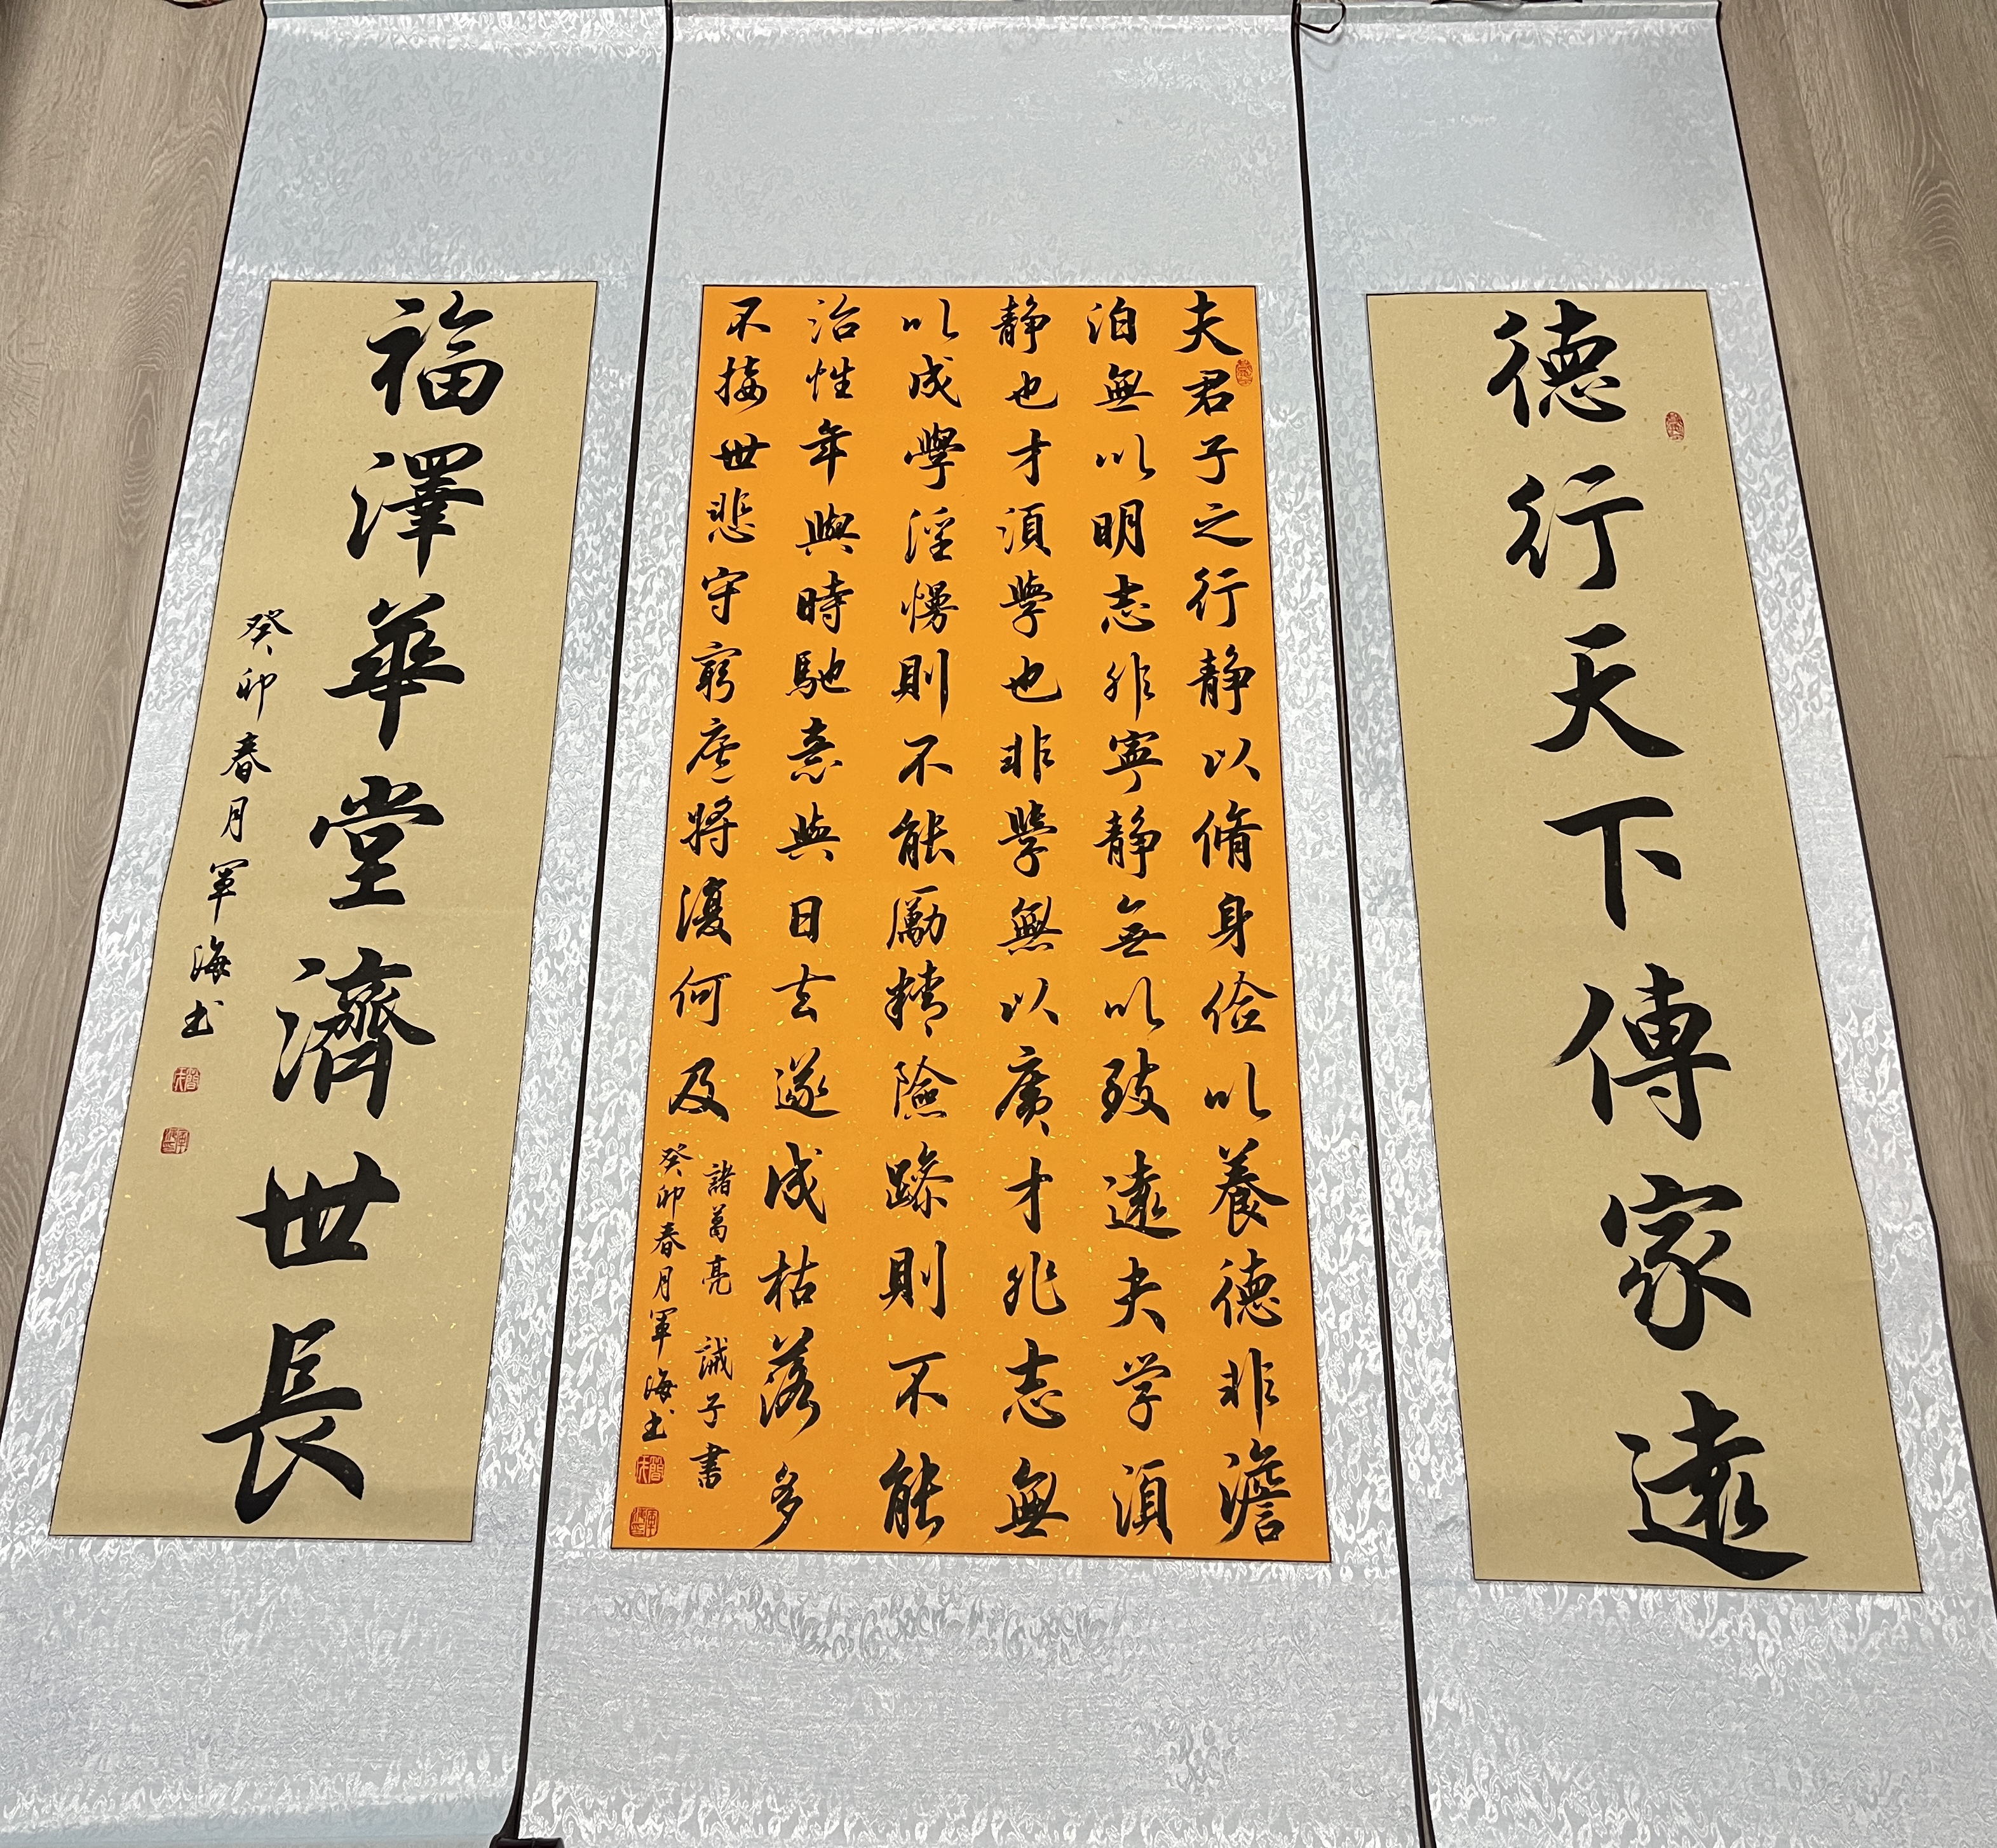 德行天下傳家遠
夫君子之行静以脩身俭以養德非澹
泊無以明志非寧静無以致遠夫学須
静也才須學也非學無以廣才非志無
以成學淫慢則不能勵精險躁則不能
治性年與時馳意與日去遂成枯落多
不接世悲守窮廬將復何及
諸葛亮 誡子書
癸卯春月軍海书
福澤華堂濟世長
癸卯春月軍海书